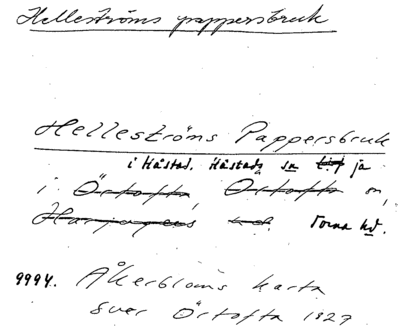 Helleströms pappersbruk
Helleströms Pappersbruk
i Håstad, Håstads sn ja
i Örtofta, Örtofta sn,
Harjagers hd. Torna hd.
9994. Åkerbloms karta
över Örtofta 1827